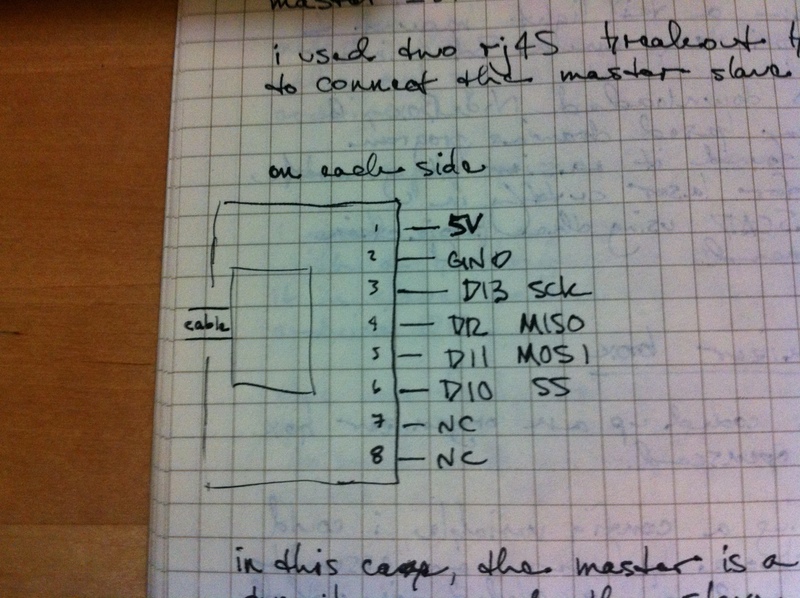 master
i used two rj45 breakout
to connect the master slave
on each side
1 — 5V
2 — GND
3 — D13 SCK
cable
4 — D12 MISO
5 — D11 MOSI
6 — D10 SS
7 — NC
8 — NC
in this case, the master is a